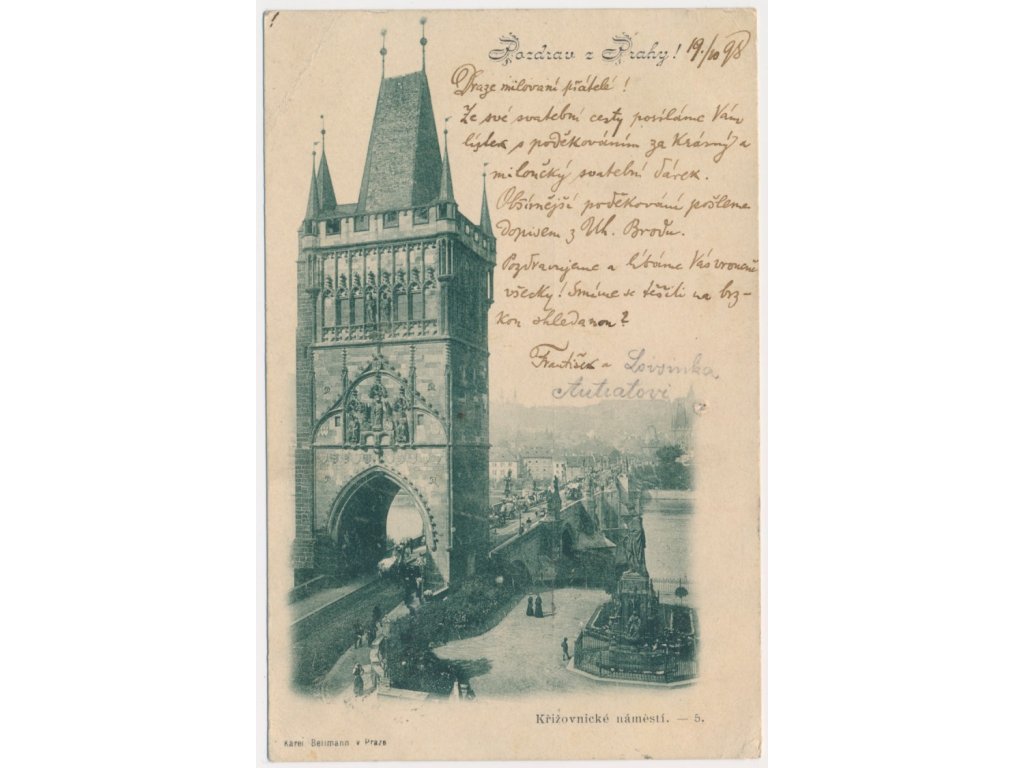 Pozdrav z Prahy! 19/10 98
Draze milovaní přátelé!
Ze své svatební cesty posíláme Vám
lístek s poděkováním za krásný a
miloučký svatební dárek.
Obšírnější poděkování pošleme
dopisem z Uh. Brodu.
Pozdravujeme a líbáme Vás vroucně
všecky! Smíme se těšiti na brz-
kou shledanou?
František a
Křižovnické náměstí. — 5.
Karel Bellmann v Praze